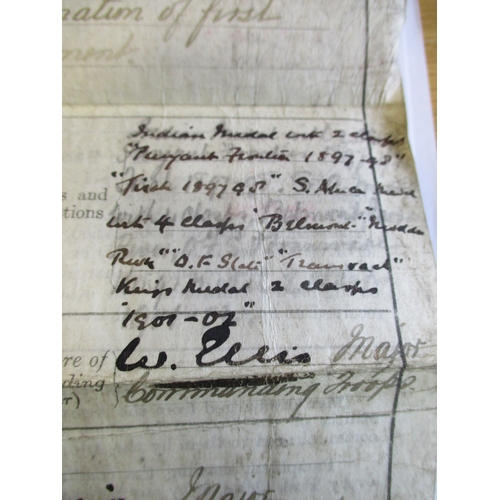 nation of first
ment.
Indian Medal with 2 clasps
"Punjaub Frontier 1897-98"
"Tirah 1897 98" S. Africa Medal
s and
with 4 clasps "Belmont" "Modder
ctions
River" "O. F. State" "Transvaal"
Kings Medal 2 clasps
"1901-02"
ure of
W. Ellis Major
nding
Commanding Troops.
r)
Major